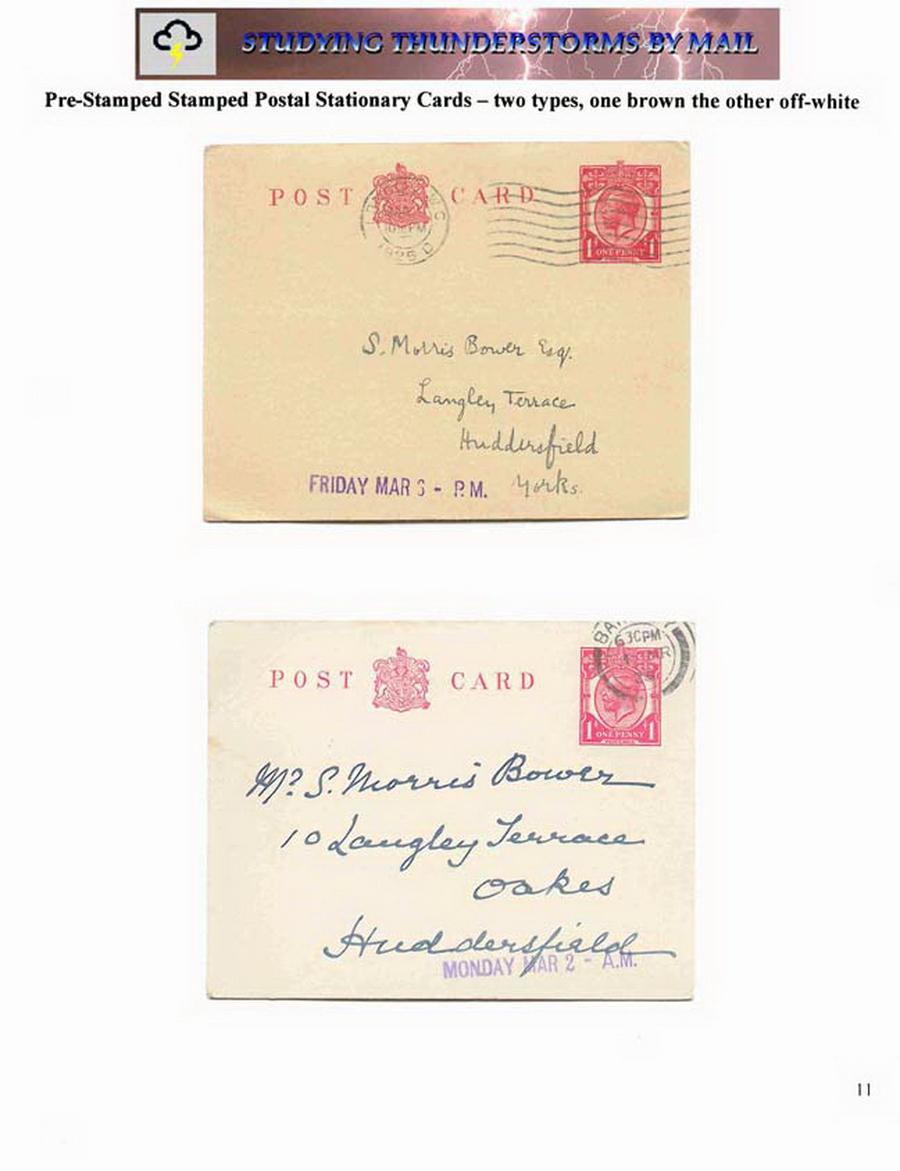 STUDYING THUNDERSTORMS BY MAIL
Pre-Stamped Stamped Postal Stationary Cards – two types, one brown the other off-white
POST CARD
1925
1 ONE PENNY 1
S. Morris Bower Esq.
Langley Terrace
Huddersfield
Yorks.
FRIDAY MAR 6 - P.M.
6 30 PM
MR
POST CARD
1 ONE PENNY 1
Mr. S. Morris Bower
10 Langley Terrace
Oakes
Huddersfield
MONDAY MAR 2 - A.M.
11